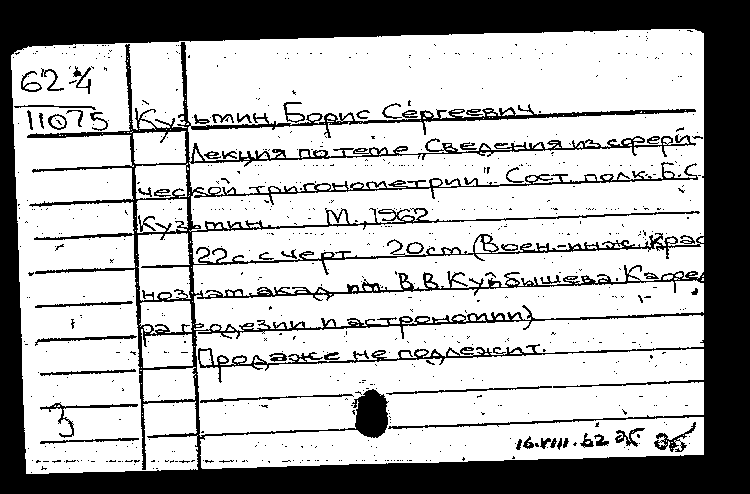 62-4
11075
Кузьмин, Борис Сергеевич.
Лекция по теме „Сведения из сфери-
ческой тригонометрии". Сост. полк. Б.С.
Кузьмин. М., 1962.
22с. с черт. 20см. (Воен-инж. крас
нознам. акад им. В.В.Куйбышева. Кафед
ра геодезии и астрономии)
Продаже не подлежит.
3
16.VIII.62